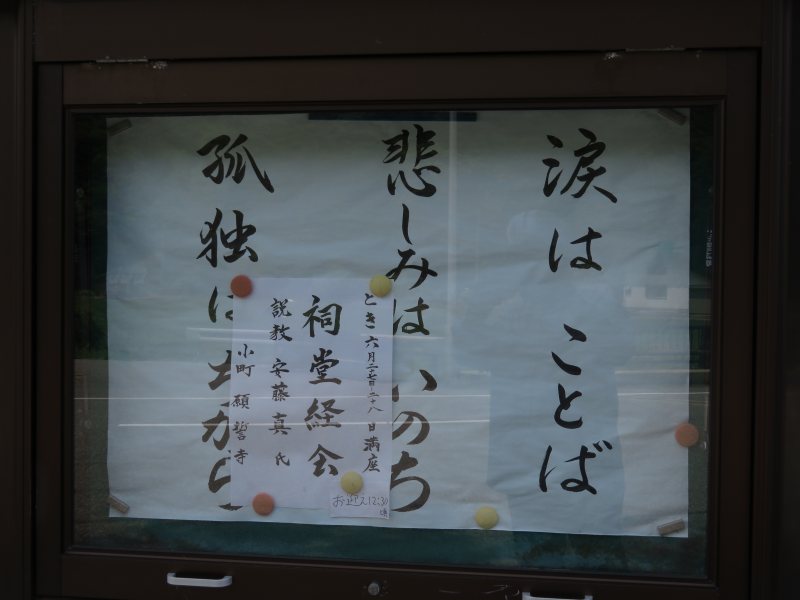 涙は ことば
悲しみは いのち
孤独は ちから
とき 六月二十七日二十八日満座
祠堂経会
説教 安藤真氏
小町 願誓寺
お迎え12:30頃